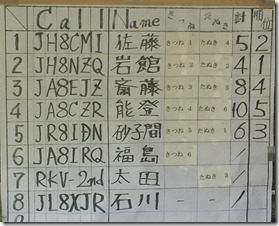 Call Name きつね たぬき 計 順位
1 JH8CMI 佐藤 きつね 1 たぬき 4 5 2
2 JH8NZQ 岩館 きつね 2 たぬき 2 4 1
3 JA8EJZ 斎藤 きつね 3 たぬき 5 8 4
4 JA8CZR 能登 きつね 4 たぬき 6 10 5
5 JR8IDN 砂子間 きつね 5 たぬき 1 6 3
6 JA8IRQ 福島 きつね 6 -
7 RKV-2nd 太田 - たぬき 3
8 JL8XJR 石川 - -